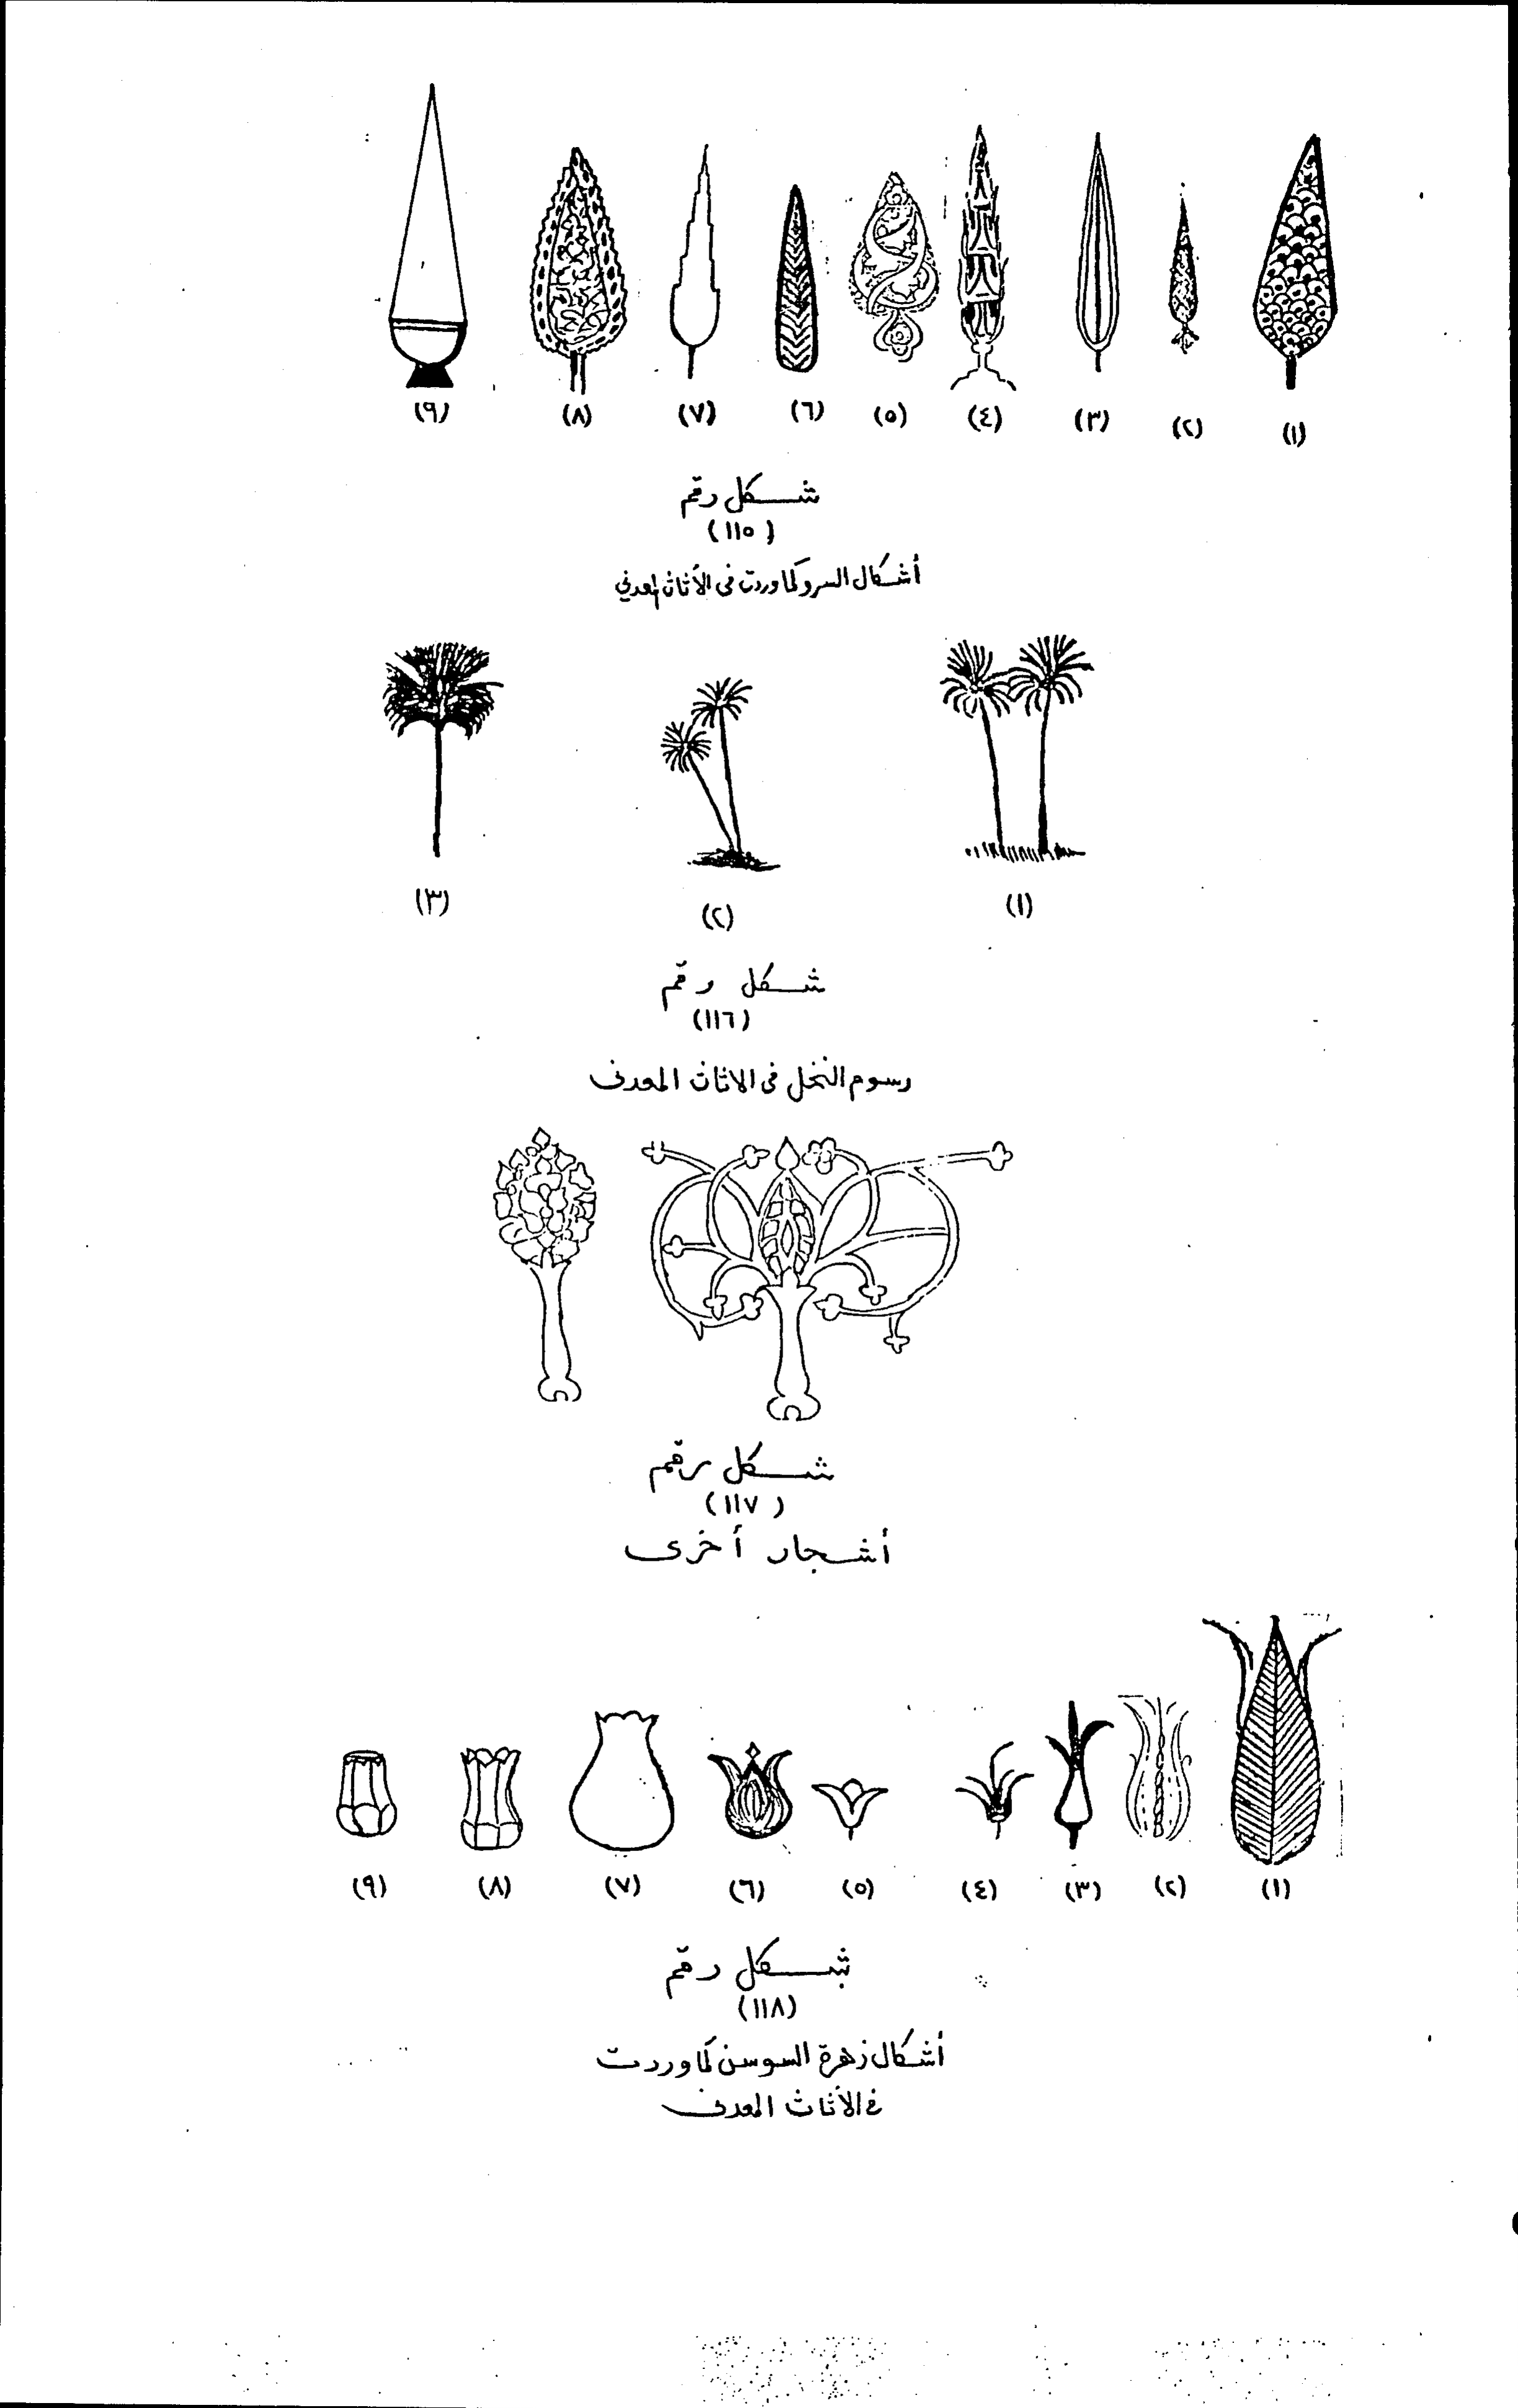 (١) (٢) (٣) (٤) (٥) (٦) (٧) (٨) (٩)
شكل رقم
(١١٥)
أشكال السرو كما وردت فى الأثاث المعدني
(١) (٢) (٣)
شكل رقم
(١١٦)
رسوم النخل فى الاثاث المعدنى
شكل رقم
(١١٧)
أشجار أخرى
(١) (٢) (٣) (٤) (٥) (٦) (٧) (٨) (٩)
شكل رقم
(١١٨)
أشكال زهرة السوسن كما وردت
فى الأثاث المعدنى